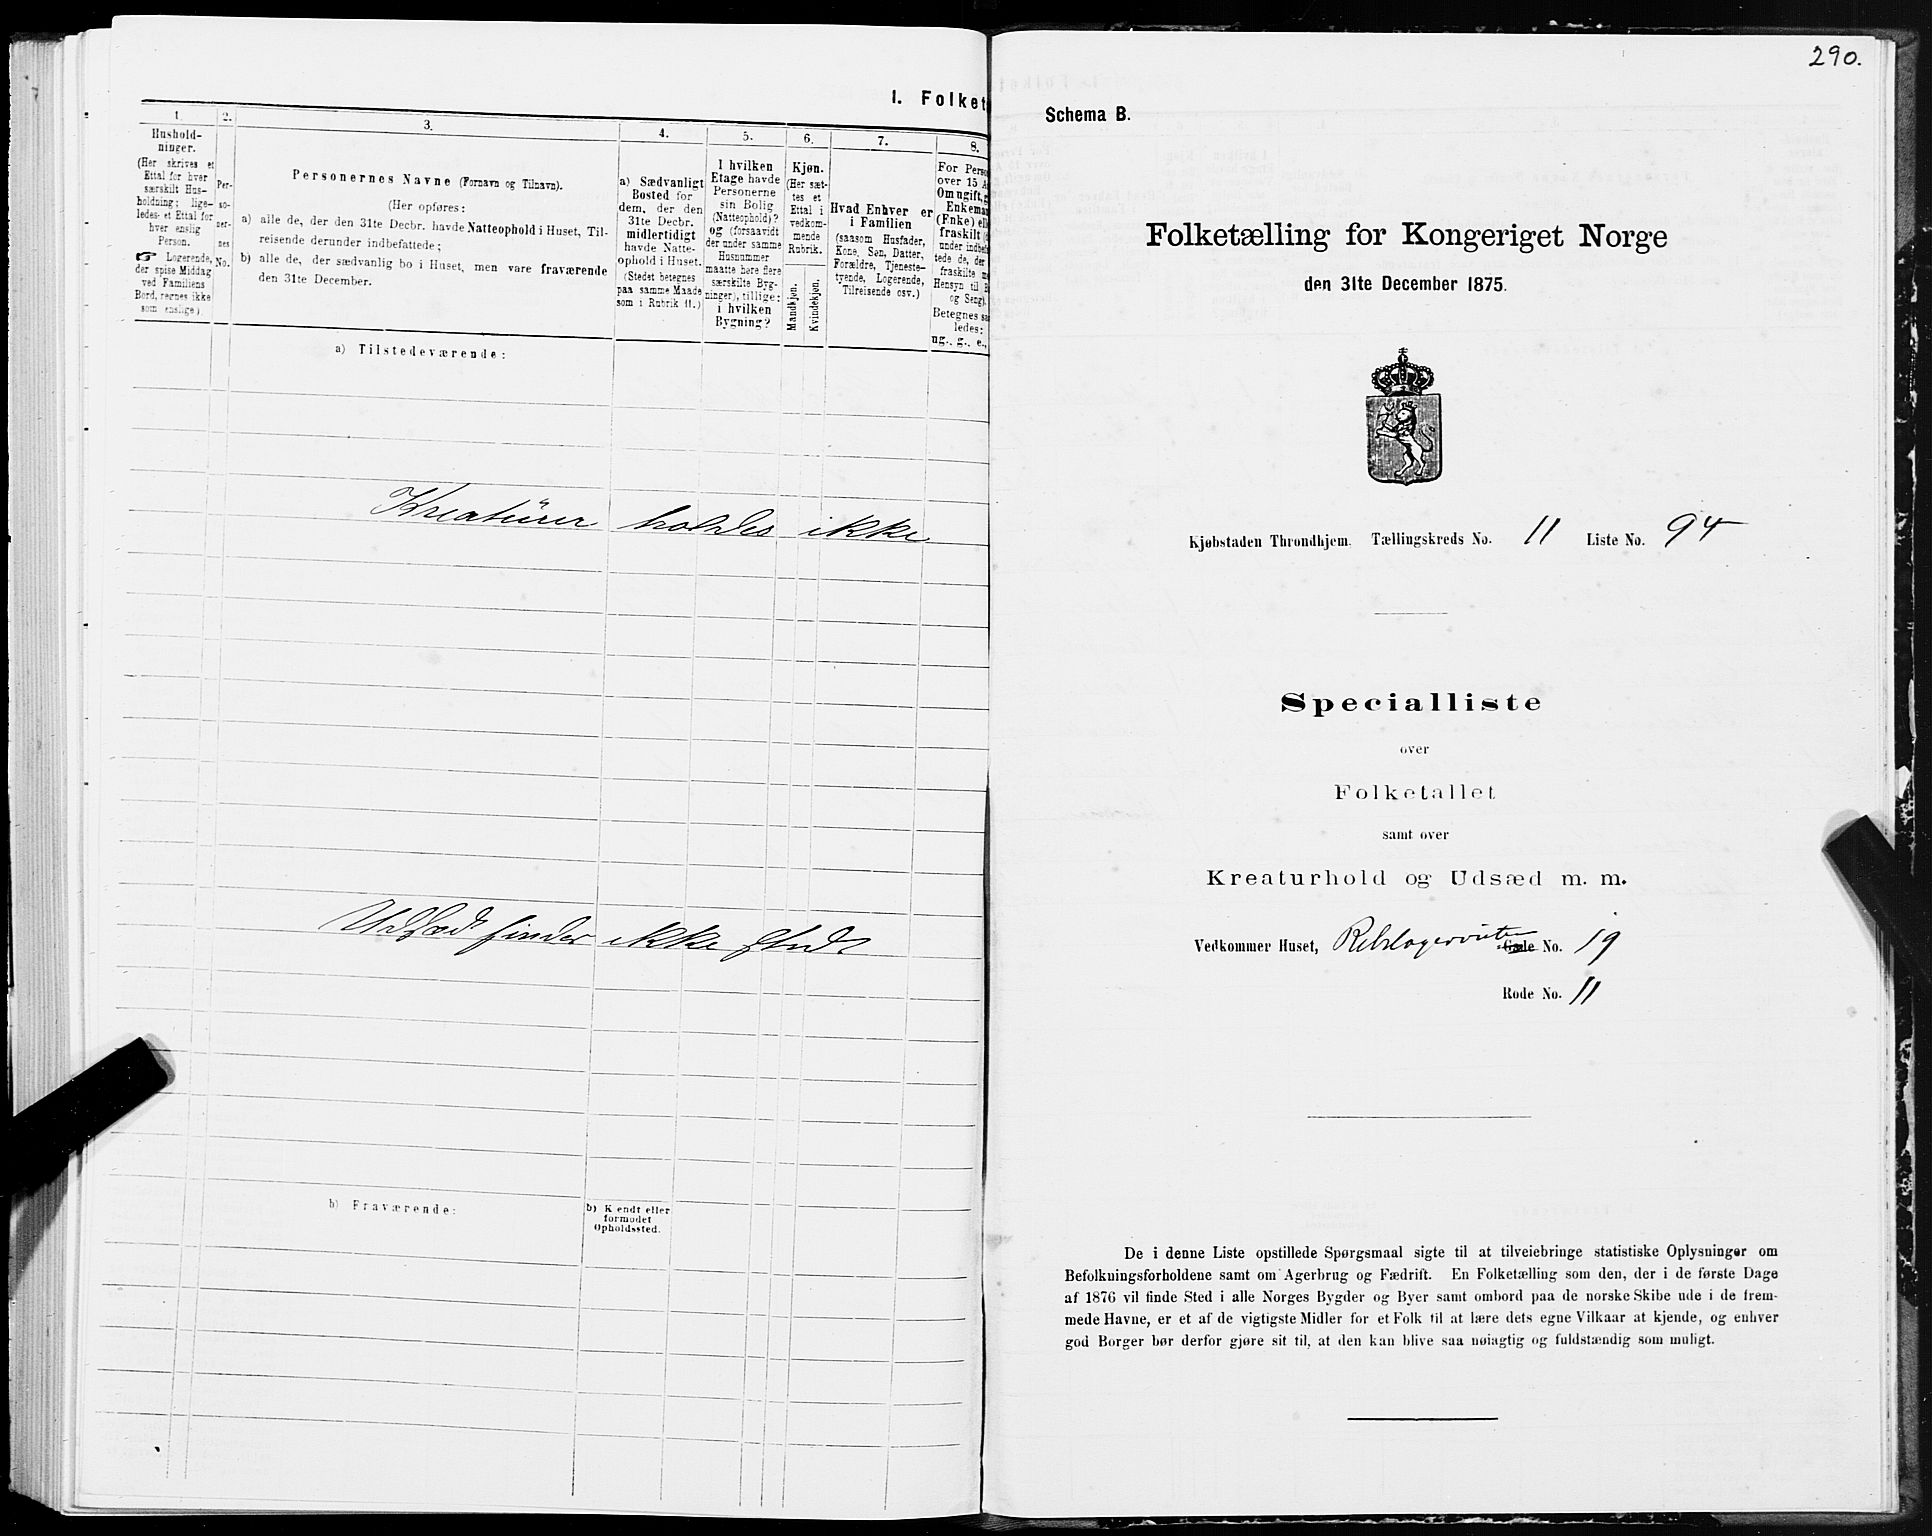 I. Folket
1.
Hushold-
ninger.
(Her skrives et
Ettal for hver
særskilt Hus-
holdning; lige-
ledes et Ettal for
hver enslig
Person.
☞ Logerende,
der spise Middag
ved Familiens
Bord, regnes ikke
som enslige).
2.
Per-
so-
ner-
nes
No.
3.
Personernes Navne (Fornavn og Tilnavn).
(Her opføres:
a) alle de, der den 31te Decbr. havde Natteophold i Huset, Til-
reisende derunder indbefattede;
b) alle de, der sædvanlig bo i Huset, men vare fraværende
den 31te December.
4.
a) Sædvanligt
Bosted for
dem, der den
31te Decbr.
midlertidigt
havde Natte-
ophold i Huset.
(Stedet betegnes
paa samme Maade
som i Rubrik 11.)
5.
I hvilken
Etage havde
Personerne
sin Bolig
(Natteophold)?
og (forsaavidt
der under samme
Husnummer
maatte høre flere
særskilte Byg-
ninger), tillige:
i hvilken
Bygning?
6.
Kjøn.
(Her sæt-
tes et
Ettal i
vedkom-
mende
Rubrik.
Mandkjøn.
Kvindekjøn.
7.
Hvad Enhver er
i Familien
(saasom Husfader,
Kone, Søn, Datter,
Forældre, Tjeneste-
tyende, Logerende,
Tilreisende osv.)
8.
For Perso
over 15 A
Om ugift, g
Enkeman
(Enke) el
fraskilt
under indbe
tede de, der
fraskilte m
Hensyn til B
og Seng).
Betegnes sa
ledes:
ug., g., e.,
a) Tilstedeværende:
Kreatürer holdes ikke
Udsæd finder ikke sted
b) Fraværende:
b) Kendt eller
formodet
Opholdssted.
290.
Schema B.
Folketælling for Kongeriget Norge
den 31te December 1875.
Kjøbstaden Throndhjem. Tællingskreds No. 11 Liste No. 94
Specialliste
over
Folketallet
samt over
Kreaturhold og Udsæd m. m.
Vedkommer Huset, Rebslagerveite Gade No. 19
Rode No. 11
De i denne Liste opstillede Spørgsmaal sigte til at tilveiebringe statistiske Oplysninger om
Befolkningsforholdene samt om Agerbrug og Fædrift. En Folketælling som den, der i de første Dage
af 1876 vil finde Sted i alle Norges Bygder og Byer samt ombord paa de norske Skibe ude i de frem-
mede Havne, er et af de vigtigste Midler for et Folk til at lære dets egne Vilkaar at kjende, og enhver
god Borger bør derfor gjøre sit til, at den kan blive saa nøiagtig og fuldstændig som muligt.